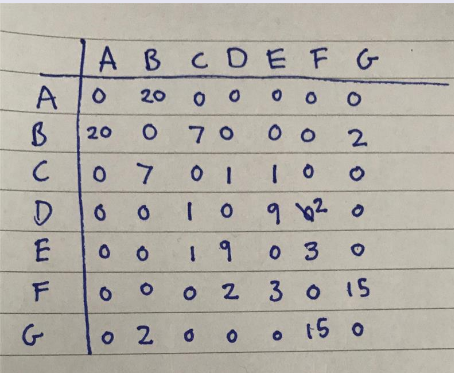 A B C D E F G
A 0 20 0 0 0 0 0
B 20 0 7 0 0 0 2
C 0 7 0 1 1 0 0
D 0 0 1 0 9 2 0
E 0 0 1 9 0 3 0
F 0 0 0 2 3 0 15
G 0 2 0 0 0 15 0